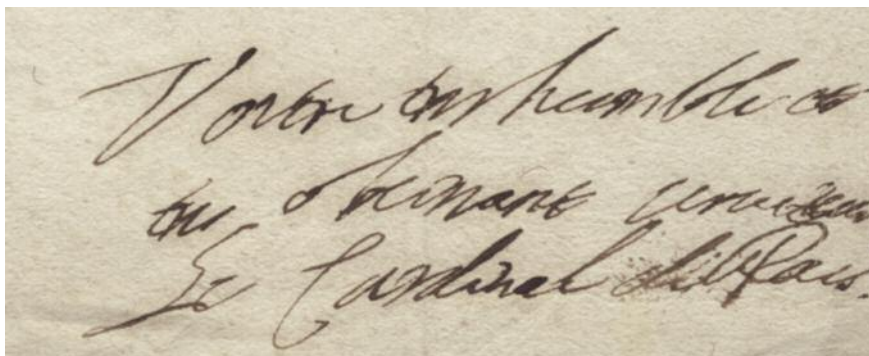 Vostre tres humble et
tres obeissant serviteur
Le Cardinal de Rais.